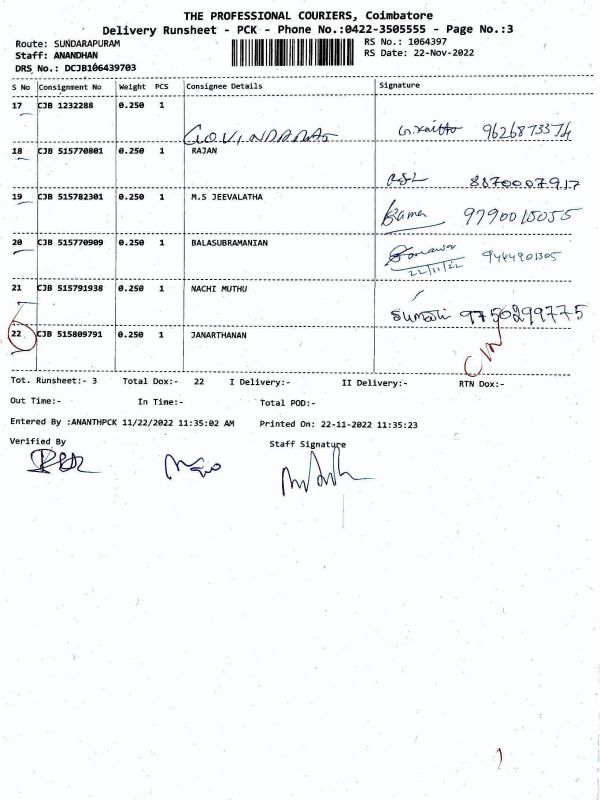 THE PROFESSIONAL COURIERS, Coimbatore
Delivery Runsheet - PCK - Phone No.:0422-3505555 - Page No.:3
Route: SUNDARAPURAM RS No.: 1064397
Staff: ANANDHAN RS Date: 22-Nov-2022
DRS No.: DCJB106439703
S No Consignment No Weight PCS Consignee Details Signature
17 CJB 1232288 0.250 1
GOVINDARAJ 9626873374
18 CJB 515770801 0.250 1 RAJAN
8870007917
19 CJB 515782301 0.250 1 M.S JEEVALATHA
Bama 9790015055
20 CJB 515770909 0.250 1 BALASUBRAMANIAN
9444901305
22/11/22
21 CJB 515791938 0.250 1 NACHI MUTHU
Sumati 9750299775
22 CJB 515809791 0.250 1 JANARTHANAN
Tot. Runsheet:- 3 Total Dox:- 22 I Delivery:- II Delivery:- RTN Dox:-
Out Time:- In Time:- Total POD:-
Entered By :ANANTHPCK 11/22/2022 11:35:02 AM Printed On: 22-11-2022 11:35:23
Verified By Staff Signature